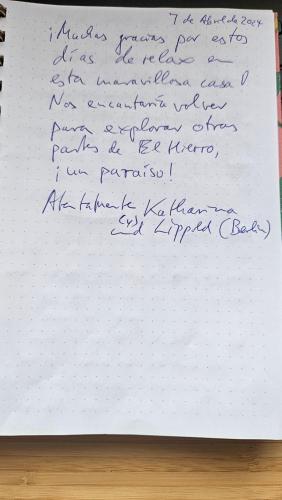 7 de Abril de 2024
¡Muchas gracias por estos
días de relax en
esta maravillosa casa!
Nos encantaría volver
para explorar otras
partes de El Hierro,
¡un paraíso!
Atentamente Katharina
(y)
und Lippold (Berlin)